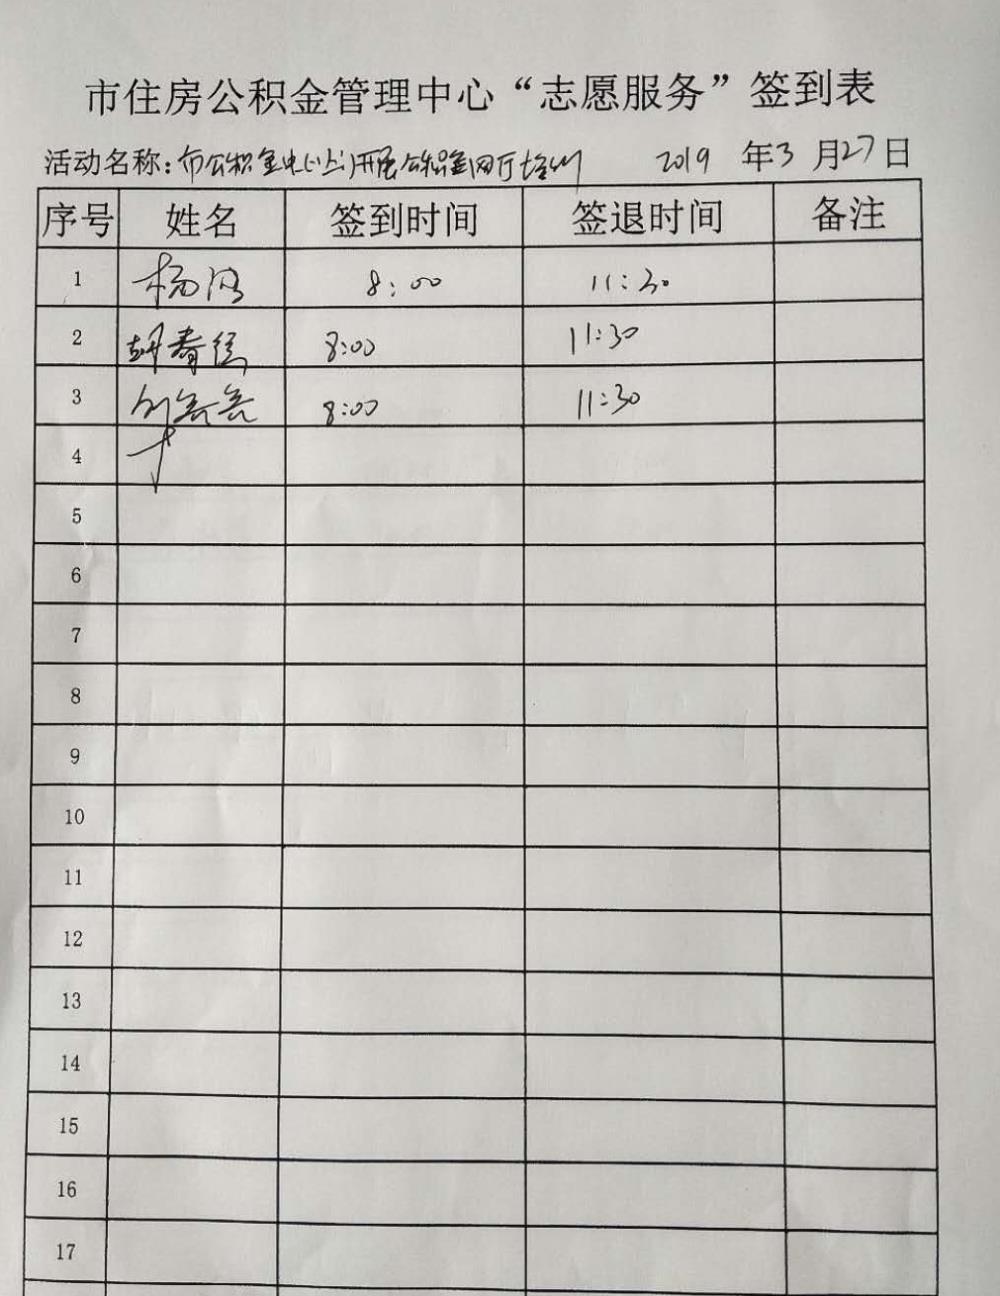 市住房公积金管理中心“志愿服务”签到表
活动名称：市公积金中心上门开展公积金网厅培训 2019 年3 月27日
序号 姓名 签到时间 签退时间 备注
1 杨 8:00 11:30
2 胡春 8:00 11:30
3 8:00 11:30
4
5
6
7
8
9
10
11
12
13
14
15
16
17